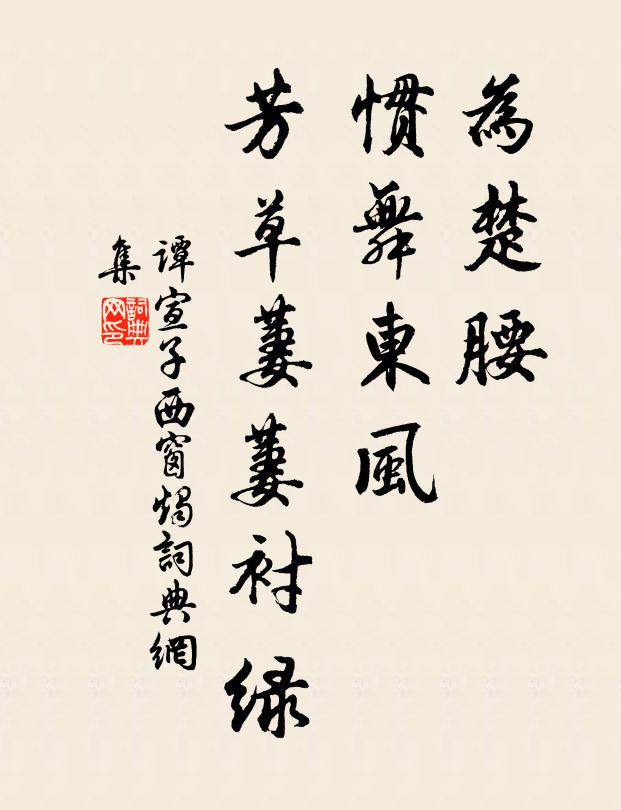 為楚腰
慣舞東風
芳草萋萋衬绿
譚宣子西窗燭詞典網
集
詞典
网印